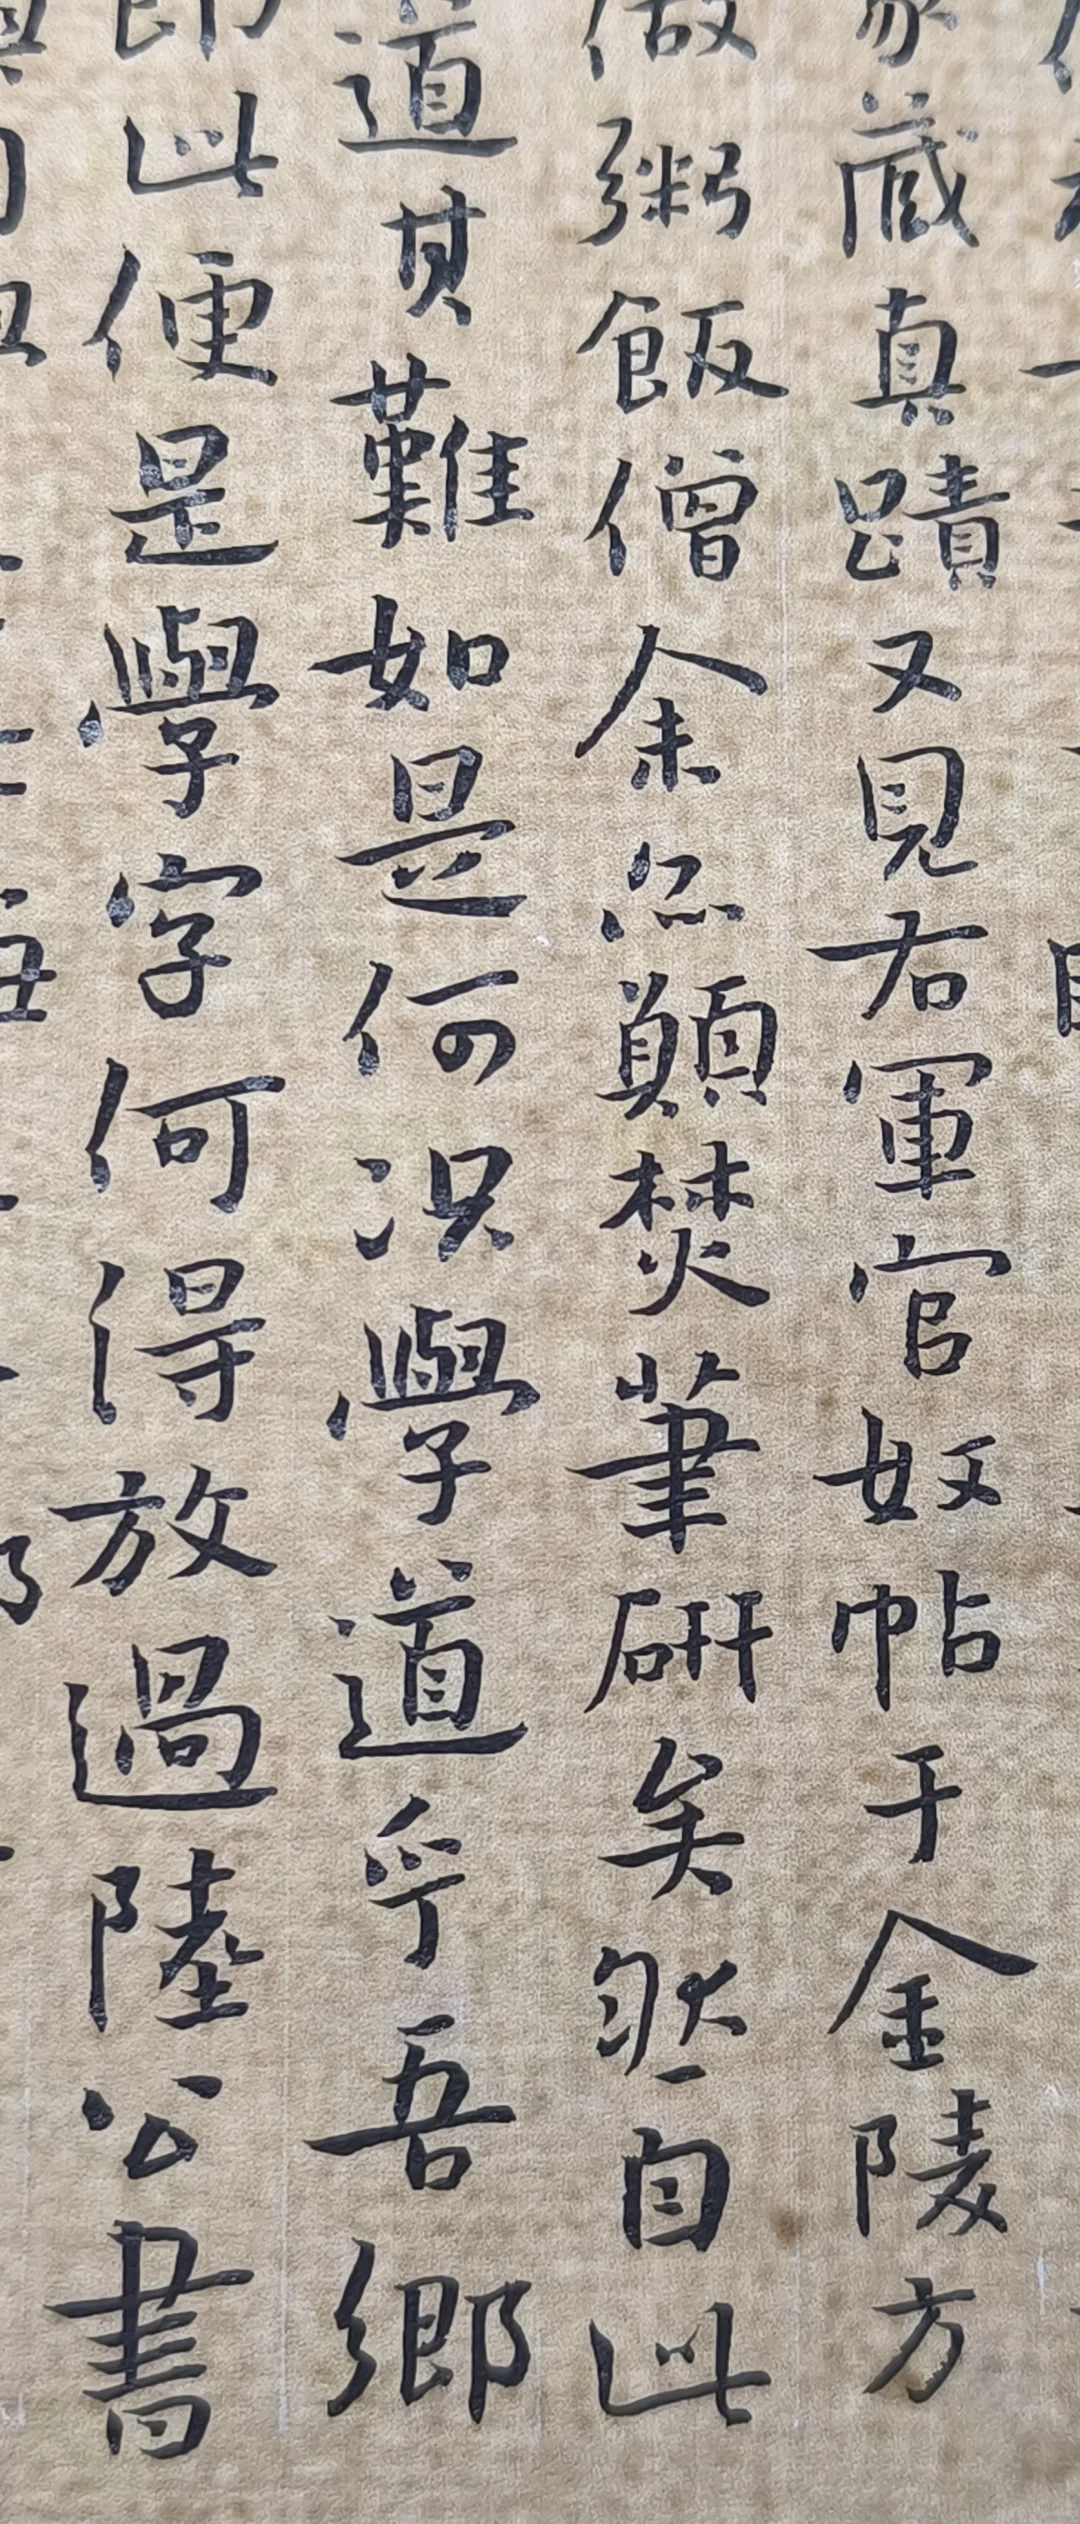 家藏真蹟又見右軍官奴帖于金陵方
做粥飯僧余亦顛焚筆研矣然自此
道其難如是何況學道乎吾鄉
即此便是學字何得放過陸公書